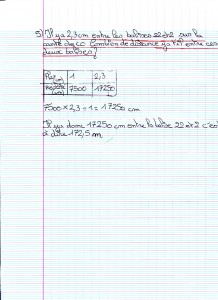 5) Il y a 2,3 cm entre les balises 22 et 2 sur la
carte de CO. Combien de distance y a-t-il entre ces
deux balises?
1 2,3
7500 17250
7500 x 2,3 ÷ 1 = 17250 cm
Il y a donc 17250 cm entre la balise 22 et 2 c'est
à dire 172,5 m